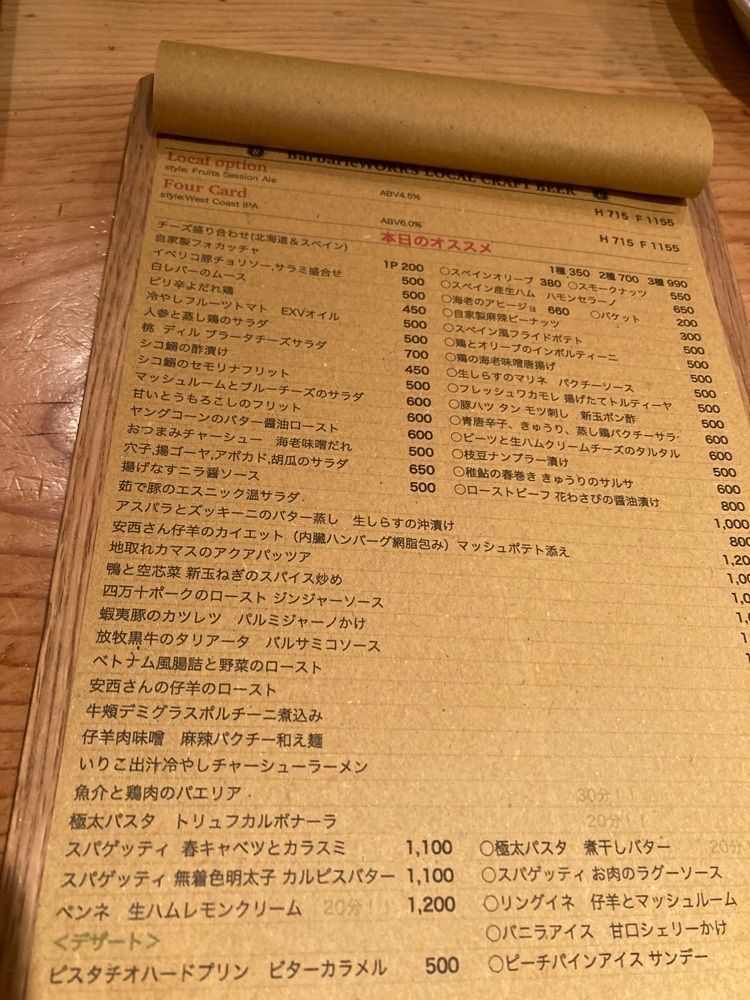 BarbaricWORKS LOCAL CRAFT BEER
Local option
style: Fruits Session Ale
ABV4.5%
H 715 F 1155
Four Card
style:West Coast IPA
ABV6.0%
H 715 F 1155
本日のオススメ
チーズ盛り合わせ(北海道＆スペイン) 1種 350 2種 700 3種 990
自家製フォカッチャ 1P 200
イベリコ豚チョリソー,サラミ盛合せ 500
白レバーのムース 500
ピリ辛よだれ鶏 450
冷やしフルーツトマト EXVオイル 500
人参と蒸し鶏のサラダ 500
桃 ディル ブラータチーズサラダ 700
シコ鰯の酢漬け 450
シコ鰯のセモリナフリット 500
マッシュルームとブルーチーズのサラダ 600
甘いとうもろこしのフリット 600
ヤングコーンのバター醤油ロースト 600
おつまみチャーシュー 海老味噌だれ 500
穴子,揚ゴーヤ,アボカド,胡瓜のサラダ 650
揚げなすニラ醤ソース 500
茹で豚のエスニック温サラダ
〇スペインオリーブ 380 〇スモークナッツ 550
〇スペイン産生ハム ハモンセラーノ 650
〇海老のアヒージョ 660 〇バケット 200
〇自家製麻辣ピーナッツ 300
〇スペイン風フライドポテト 500
〇鶏とオリーブのインボルティーニ 500
〇鶏の海老味噌唐揚げ 500
〇生しらすのマリネ パクチーソース 500
〇フレッシュワカモレ 揚げたてトルティーヤ 500
〇豚ハツ タン モツ刺し 新玉ポン酢 500
〇青唐辛子、きゅうり、蒸し鶏パクチーサラ 600
〇ビーツと生ハムクリームチーズのタルタル 600
〇枝豆ナンプラー漬け 500
〇稚鮎の春巻き きゅうりのサルサ 600
〇ローストビーフ 花わさびの醤油漬け 800
アスパラとズッキーニのバター蒸し 生しらすの沖漬け 1,000
安西さん仔羊のカイエット（内臓ハンバーグ網脂包み）マッシュポテト添え
地取れカマスのアクアパッツァ
鴨と空芯菜 新玉ねぎのスパイス炒め
四万十ポークのロースト ジンジャーソース
蝦夷豚のカツレツ パルミジャーノかけ
放牧黒牛のタリアータ バルサミコソース
ベトナム風腸詰と野菜のロースト
安西さんの仔羊のロースト
牛頬デミグラスポルチーニ煮込み
仔羊肉味噌 麻辣パクチー和え麺
いりこ出汁冷やしチャーシューラーメン
魚介と鶏肉のパエリア 30分！！
極太パスタ トリュフカルボナーラ 20分！！
スパゲッティ 春キャベツとカラスミ 1,100 〇極太パスタ 煮干しバター 20分
スパゲッティ 無着色明太子 カルピスバター 1,100 〇スパゲッティ お肉のラグーソース
ペンネ 生ハムレモンクリーム 20分！！ 1,200 〇リングイネ 仔羊とマッシュルーム
＜デザート＞ 〇バニラアイス 甘口シェリーかけ
ピスタチオハードプリン ビターカラメル 500 〇ピーチパインアイス サンデー